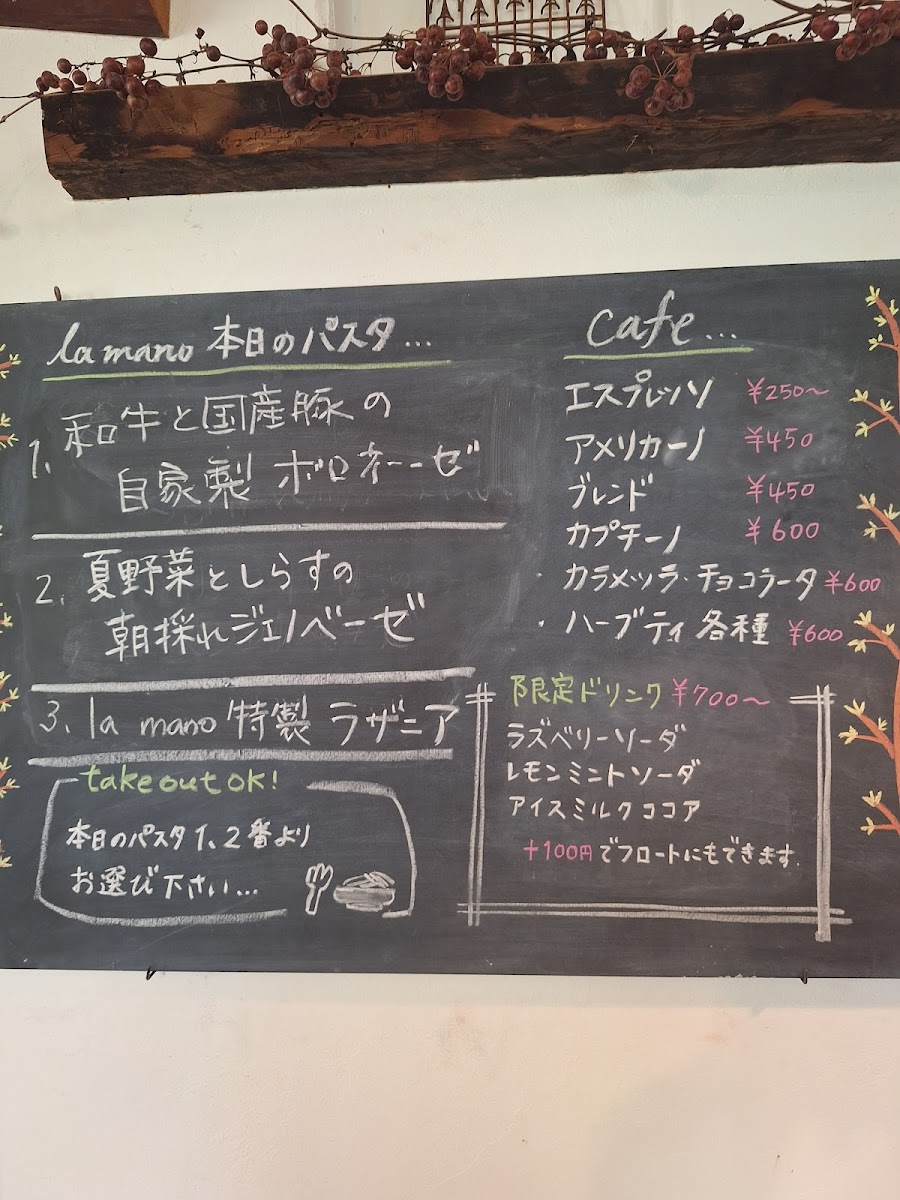 la mano 本日のパスタ...
1. 和牛と国産豚の
自家製 ボロネーゼ
2. 夏野菜としらすの
朝採れジェノベーゼ
3. la mano 特製 ラザニア
take out OK!
本日のパスタ 1、2番より
お選び下さい...
Cafe...
エスプレッソ ¥250〜
アメリカーノ ¥450
ブレンド ¥450
カプチーノ ¥600
・ カラメッラ・チョコラータ ¥600
・ ハーブティ 各種 ¥600
限定ドリンク ¥700〜
ラズベリーソーダ
レモンミントソーダ
アイスミルクココア
+100円でフロートにもできます.